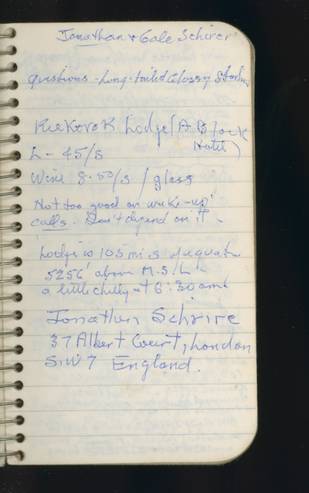 Jonathan & Gale Schirer
Questions - Long-tailed Glossy Starlin
Lodge (A Block
Hotel)
L - 45/s
Wine 8.50/s / glass
Not too good on wake-up
calls. Don't depend on it -
Lodge is 105 mi. s of equator
5256' above M.S.L.
a little chilly at 6:30 am
Jonathan Schrire
37 Albert Court, London
S.W 7 England.